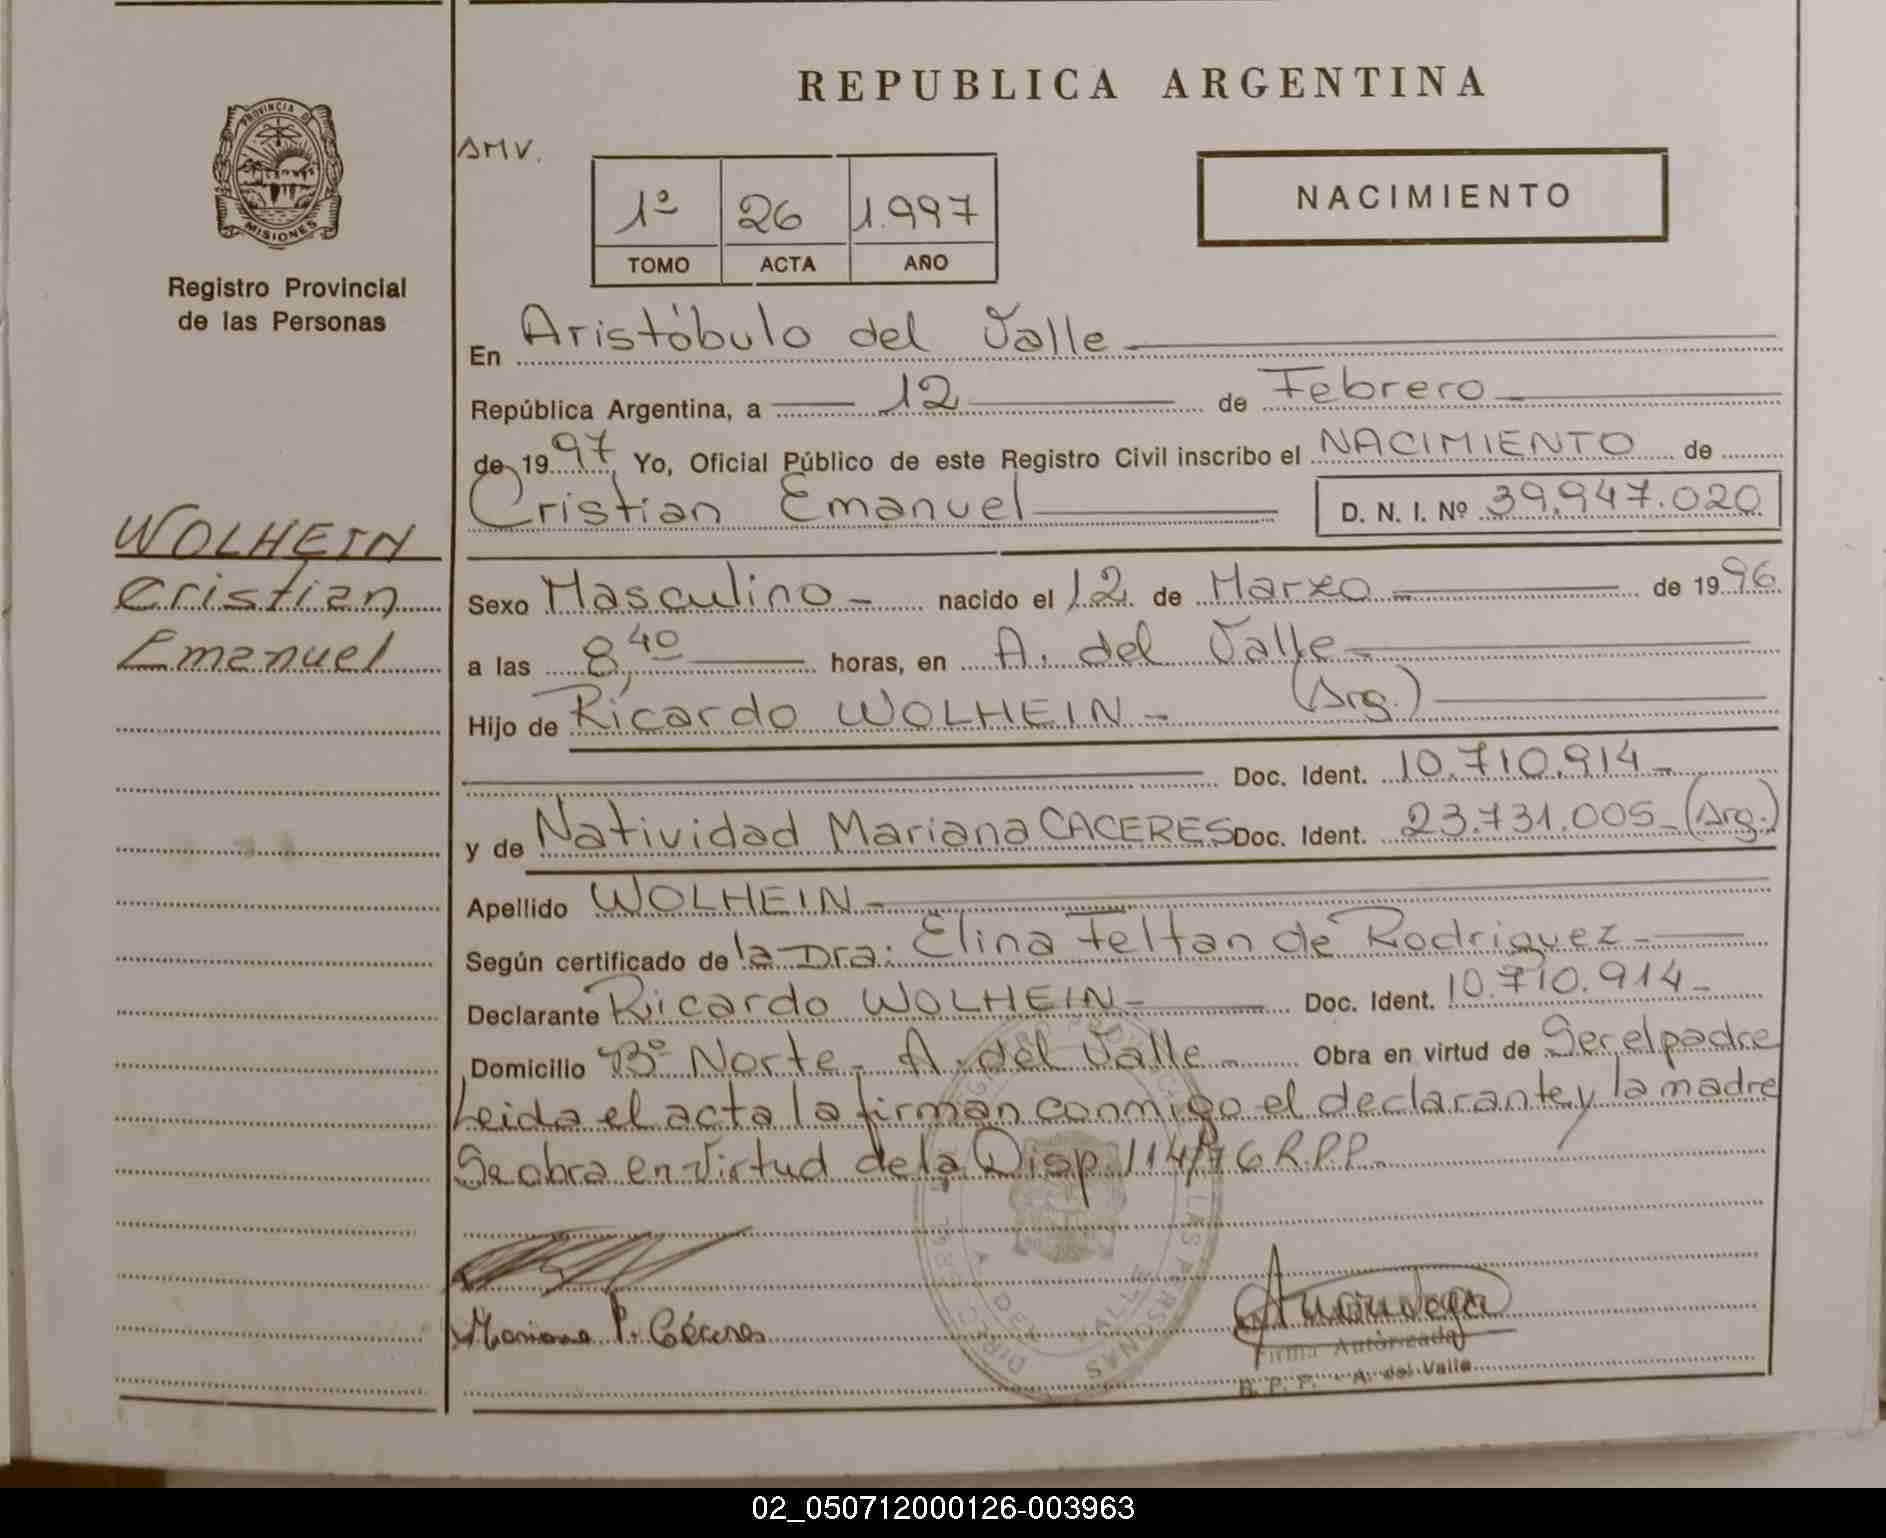 REPUBLICA ARGENTINA
PROVINCIA DE
MISIONES
Registro Provincial
de las Personas
AMV.
1º 26 1.997
TOMO ACTA AÑO
NACIMIENTO
En Aristóbulo del Valle
República Argentina, a 12 de Febrero
de 1997 Yo, Oficial Público de este Registro Civil inscribo el NACIMIENTO de
Cristian Emanuel D. N. I. Nº 39.947.020
WOLHEIN
Cristian
Emanuel
Sexo Masculino - nacido el 12 de Marzo de 1996
a las 8,40 horas, en A. del Valle
Hijo de Ricardo WOLHEIN - (Arg.)
Doc. Ident. 10.710.914-
y de Natividad Mariana CACERES Doc. Ident. 23.731.005-(Arg.)
Apellido WOLHEIN-
Según certificado de la Dra: Elina Feltan de Rodriguez-
Declarante Ricardo WOLHEIN- Doc. Ident. 10.710.914-
Domicilio Bº Norte- A. del Valle- Obra en virtud de Ser el padre
Leida el acta la firman conmigo el declarante y la madre
Se obra en virtud de la Disp. 114/76 R.P.P.
Mariana Cáceres
Firma Autorizada
R. P. P. - A. del Valle
02_050712000126-003963